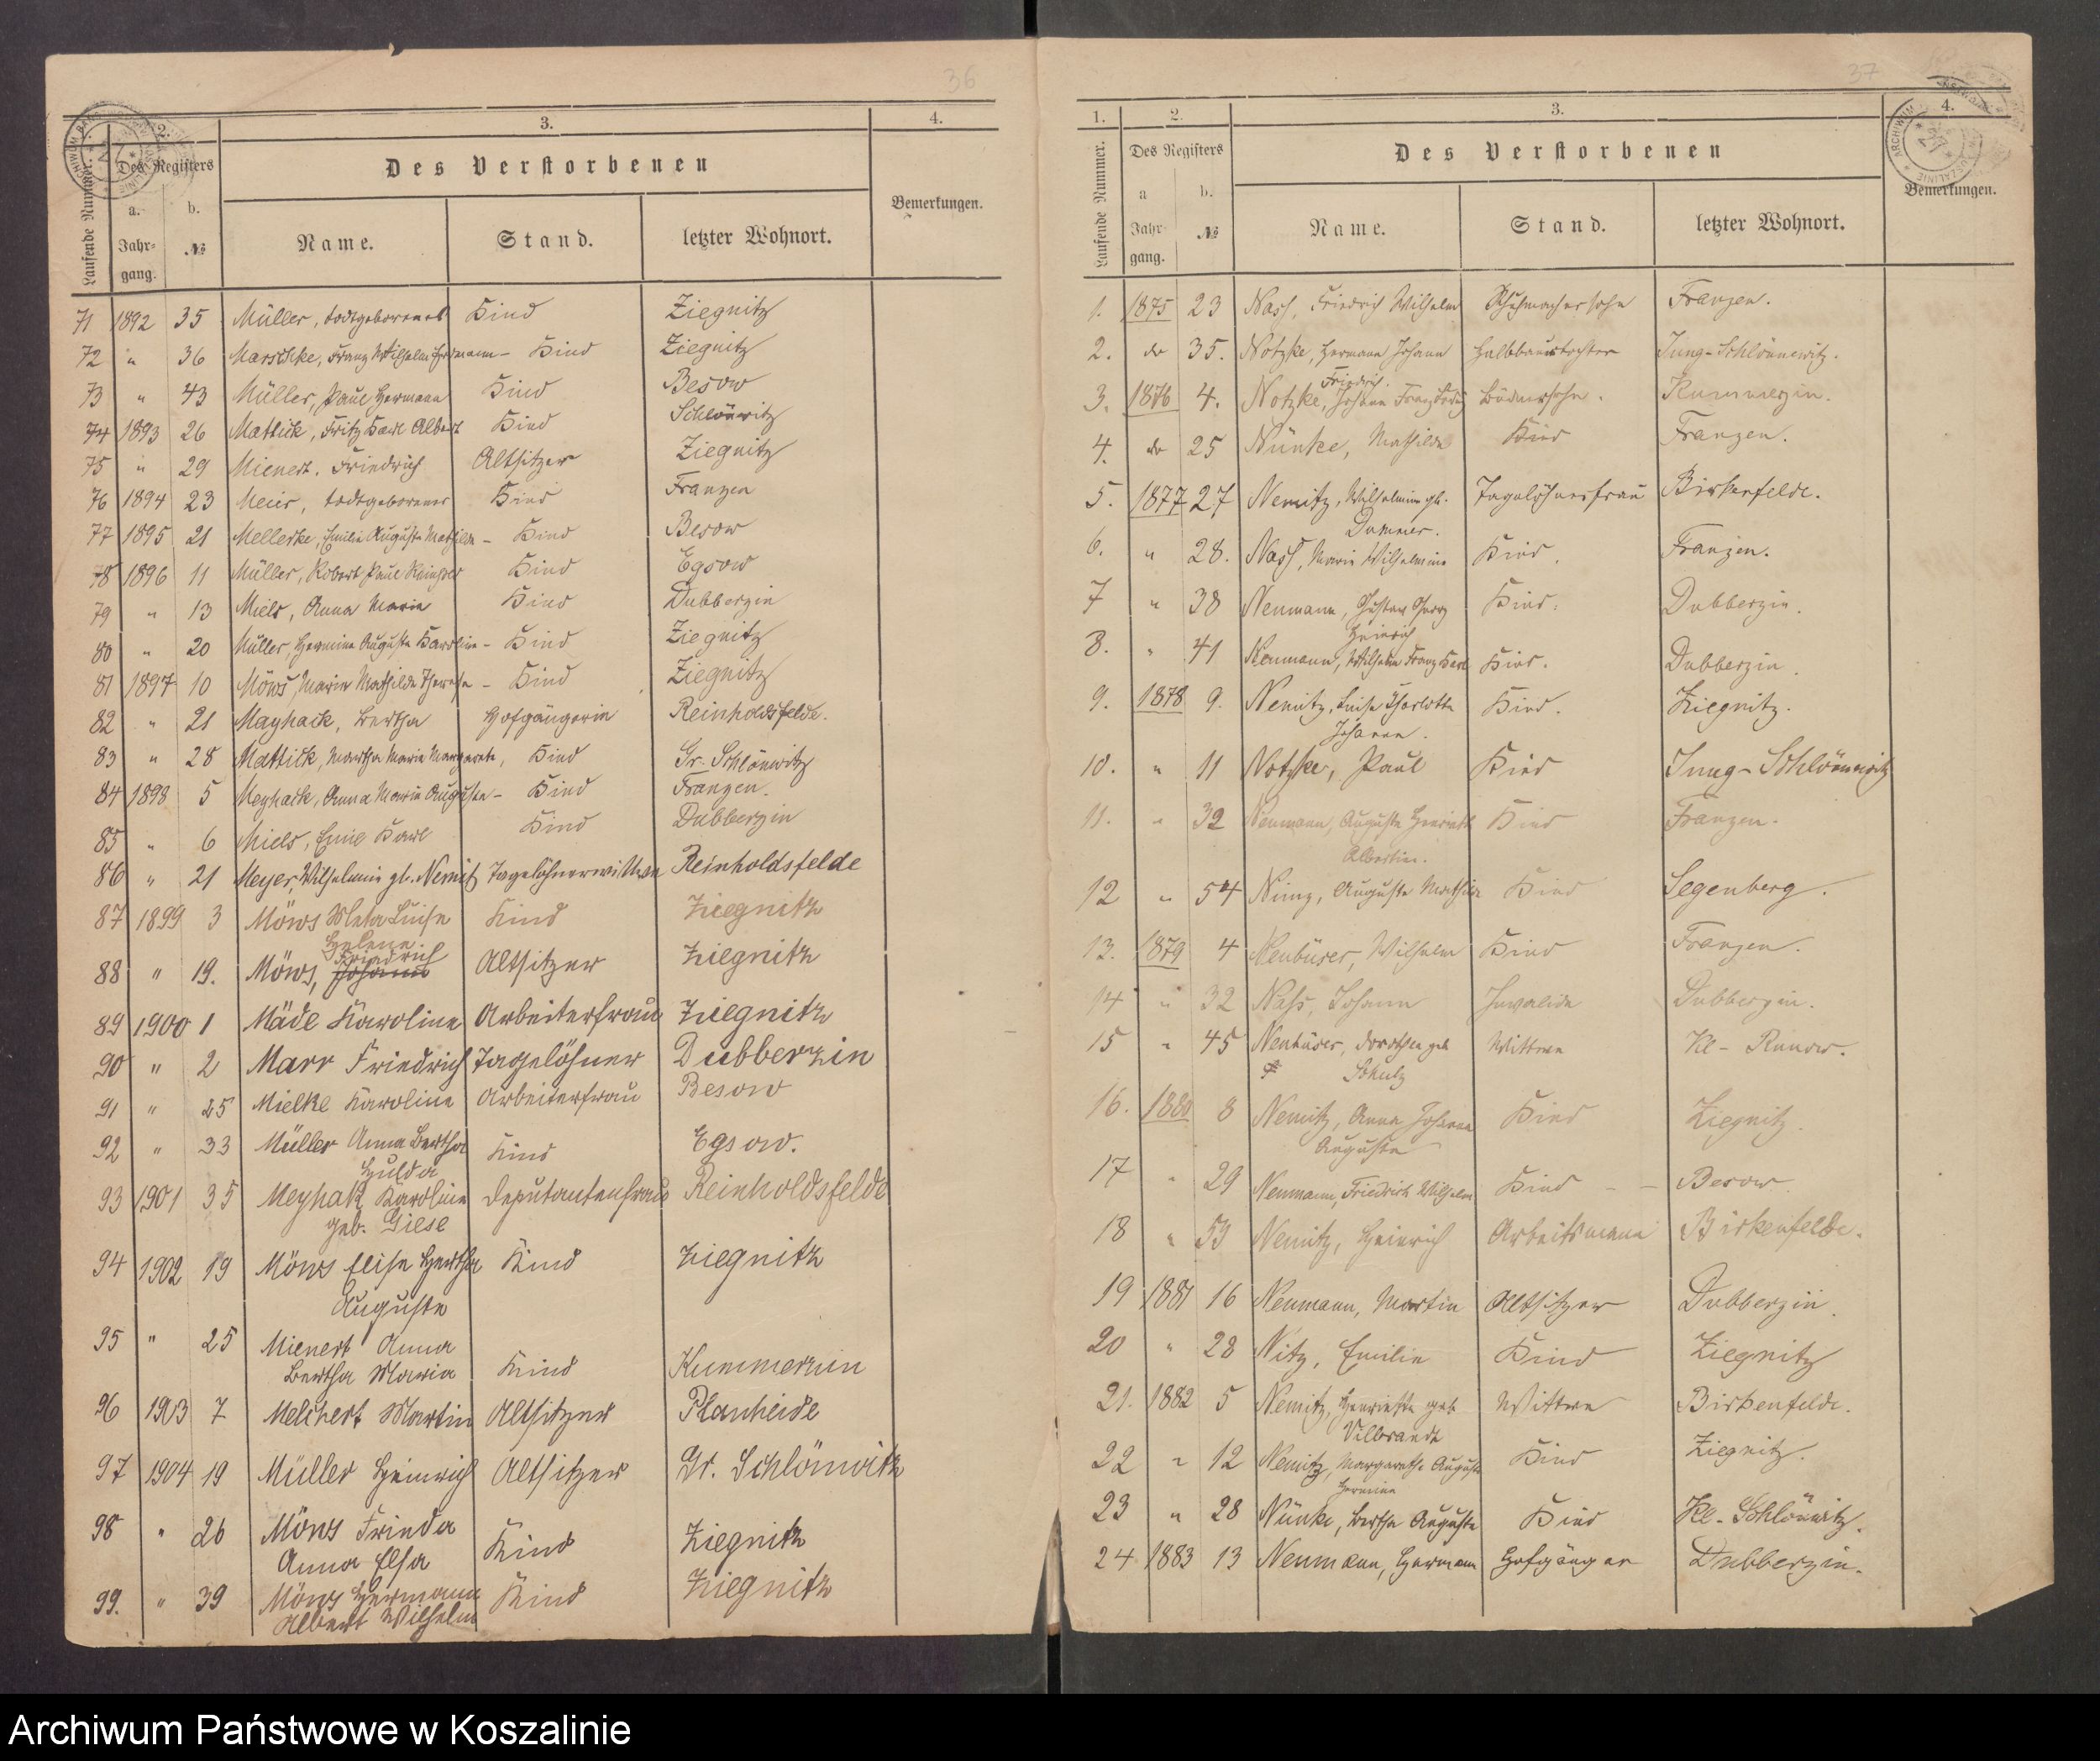 36
1. 2. 3. 4.
Laufende Nummer. Des Registers Des Verstorbenen Bemerkungen.
a. Jahrgang. b. № Name. Stand. letzter Wohnort.
71 1892 35 Müller, todtgeborenes Kind Ziegnitz
72 " 36 Marschke, Franz Wilhelm Hermann - Kind Ziegnitz
73 " 43 Müller, Paul Hermann Kind Besow
74 1893 26 Mattick, Fritz Karl Albert Kind Schlönwitz
75 " 29 Mienert. Friedrich Altsitzer Ziegnitz
76 1894 23 Meier, todtgeborenes Kind Franzen
77 1895 21 Mellerke, Emilie Auguste Mathilde - Kind Besow
78 1896 11 Müller, Robert Paul Reinhold Kind Egsow
79 " 13 Miels, Anna Marie Kind Dubberzin
80 " 20 Müller, Hermine Auguste Karoline - Kind Ziegnitz
81 1897 10 Möws, Marie Mathilde Therese - Kind Ziegnitz
82 " 21 Mayhack, Bertha Hofgängerin Reinholdsfelde.
83 " 28 Mattick, Martha Marie Margarete, Kind Gr. Schlönwitz
84 1898 5 Meyhack, Anna Marie Auguste - Kind Franzen.
85 " 6 Miels, Emil Karl Kind Dubberzin
86 " 21 Meyer, Wilhelmine gb. Nemitz Tagelöhnerwittwe Reinholdsfelde
87 1899 3 Möws Meta Luise Kind Ziegnitz
Helene.
Friedrich
88 " 19. Möws, Johann Altsitzer Ziegnitz
89 1900 1 Mäde Karoline Arbeiterfrau Ziegnitz
90 " 2 Marr Friedrich Tagelöhner Dubberzin
91 " 25 Mielke Karoline Arbeiterfrau Besow
92 " 33 Müller Anna Bertha Kind Egsow.
Hulda
93 1901 35 Meyhak Karoline Deputantenfrau Reinholdsfelde
geb. Giese
94 1902 19 Möws Elise Hertha Kind Ziegnitz
Auguste
95 " 25 Mienert Anna
Bertha Maria Kind Kummerzin
96 1903 7 Melchert Martin Altsitzer Planheide
97 1904 19 Müller Heinrich Altsitzer Gr. Schlönwitz
98 " 26 Möws Frieda
Anna Elsa Kind Ziegnitz
99. " 39 Möws Hermann Kind Ziegnitz
Albert Wilhelm
37
1. 2. 3. 4.
Laufende Nummer. Des Registers Des Verstorbenen Bemerkungen.
a Jahrgang. b. № Name. Stand. letzter Wohnort.
1. 1875 23 Nass, Friedrich Wilhelm Schuhmachersohn Franzen.
2. do 35. Notzke, Hermann Johann Halbbauertochter Jung-Schlönnwitz.
Friedrich.
3. 1876 4. Notzke, Johann Franz Büdnersohn. Kummerzin.
4. do 25 Nünke, Mathilde Kind Franzen.
5. 1877 27 Nemitz, Wilhelmine gb. Tagelöhnerfrau Birkenfelde.
Dummer.
6. " 28. Nass, Marie Wilhelmine Kind. Franzen.
7 " 38 Neumann, Gustav Georg Kind. Dubberzin.
Heinrich
8. " 41 Neumann, Wilhelm Franz Karl Kind. Dubberzin.
9. 1878 9. Nemitz, Luise Charlotte Kind. Ziegnitz.
Johanne.
10. " 11 Notzke, Paul Kind Jung-Schlönnwitz
11. " 32 Neumann, Auguste Henriette Kind Franzen.
Albertine.
12 " 54 Nimz, Auguste Mathilde Kind Segenberg.
13. 1879 4 Neubüser, Wilhelm Kind Franzen.
14 " 32 Nass, Johann Invalide Dubberzin.
15 " 45 Neubüser, Dorothea geb Wittwe Kl - Runow.
Schulz
16. 1880 8 Nemitz, Anna Johanna Kind Ziegnitz.
Auguste
17 " 29 Neumann, Friedrich Wilhelm Kind - - Besow
18 " 59 Nemitz, Heinrich Arbeitsmann Birkenfelde.
19 1881 16 Neumann, Martin Altsitzer Dubberzin.
20 " 28 Nitz, Emilie Kind Ziegnitz
21. 1882 5 Nemitz, Henriette geb Wittwe Birkenfelde.
Villbrandt
22 " 12 Nemitz, Margarethe Auguste Kind Ziegnitz.
Hermine
23 " 28 Nünke, Bertha Auguste Kind Kl. Schlönwitz.
24 1883 13 Neumann, Hermann Hofgänger Dubberzin.
Archiwum Państwowe w Koszalinie